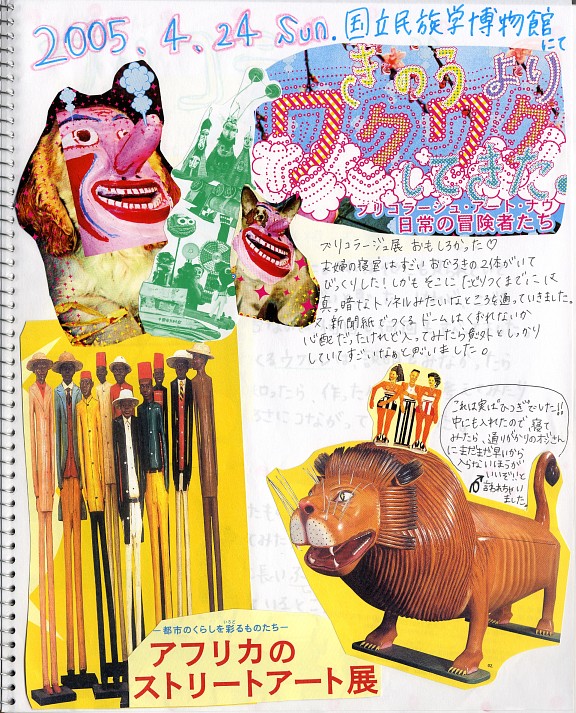 2005. 4. 24 Sun. 国立民族学博物館
にて
きのうより
ワクワク
してきた。
ブリコラージュ・アート・ナウ
日常の冒険者たち
ブリコラージュ展 おもしろかった♡
夫婦の寝室はすごいおでぶちの2体がいて
びっくりした!しかもそこにたどりつくまでには
真暗なトンネルみたいなところを通っていきました。
又、新聞紙でつくるドームはくずれないか
心配だったけれど入ってみたら意外としっかり
していてすごいなぁと思いました。
これは実はひつぎでした!!
中にも入れたので寝て
みたら、通りがかりのオジさん
にまだまだ早いから
入らないほうが
いいぞ!!と
言われちゃい
ました。
―都市のくらしを彩るものたち―
いろど
アフリカの
ストリートアート展